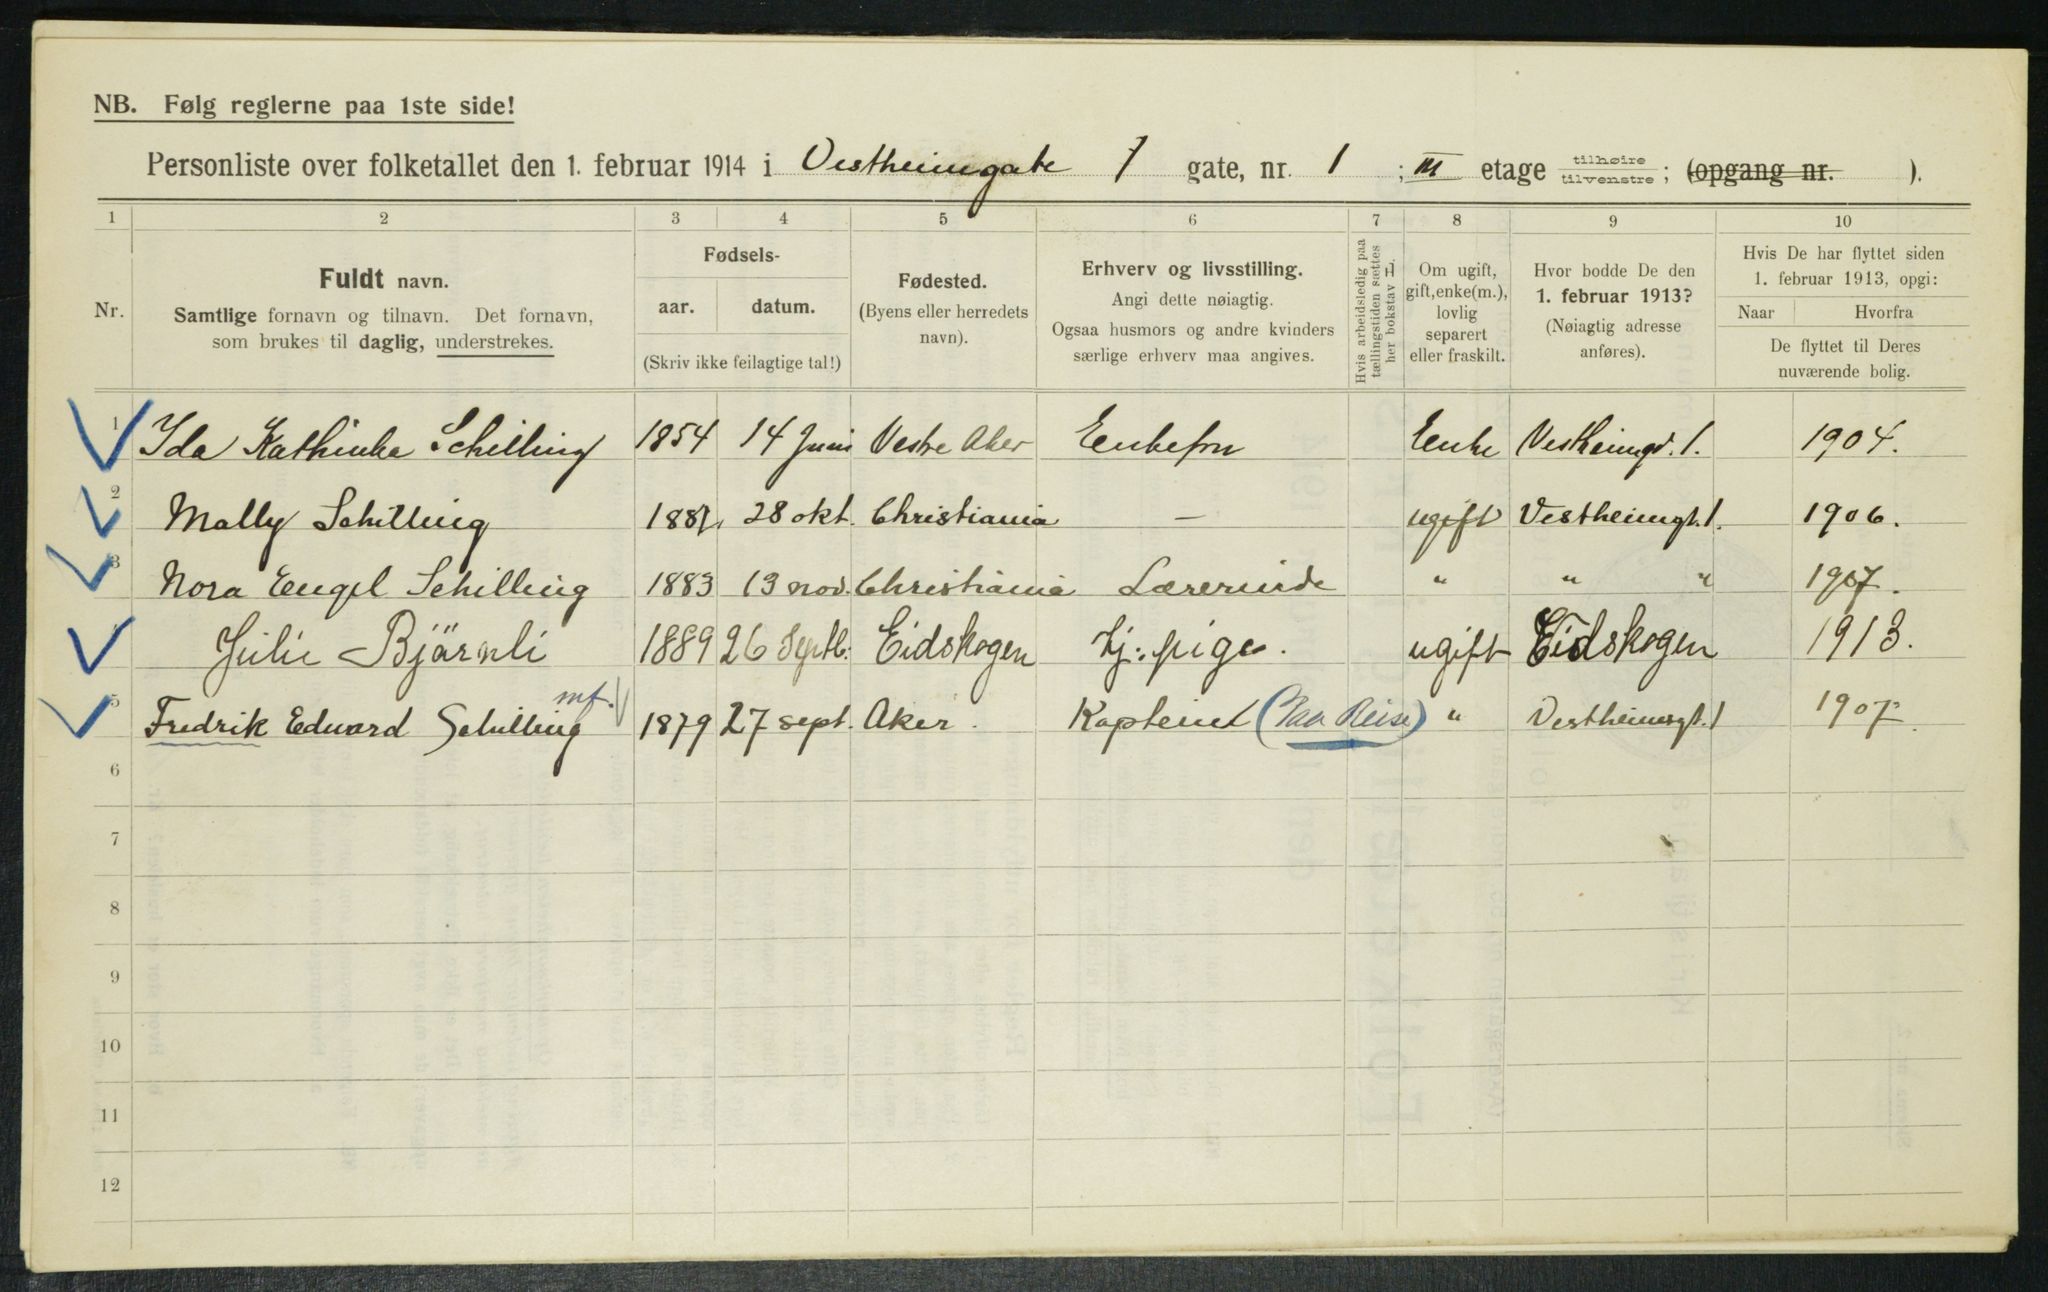 NB. Følg reglerne paa 1ste side!
Personliste over folketallet den 1. februar 1914 i Vestheimgate 1 gate, nr. 1 ; III etage tilhøire tilvenstre ; (opgang nr. ).
1 2 3 4 5 6 7 8 9 10
Nr.
Fuldt navn.
Samtlige fornavn og tilnavn. Det fornavn,
som brukes til daglig, understrekes.
Fødsels-
aar. datum.
(Skriv ikke feilagtige tal!)
Fødested.
(Byens eller herredets
navn).
Erhverv og livsstilling.
Angi dette nøiagtig.
Ogsaa husmors og andre kvinders
særlige erhverv maa angives.
Hvis arbeidsledig paa
tællingstiden settes
her bokstav L.
Om ugift,
gift, enke(m.),
lovlig
separert
eller fraskilt.
Hvor bodde De den
1. februar 1913?
(Nøiagtig adresse
anføres).
Hvis De har flyttet siden
1. februar 1913, opgi:
Naar Hvorfra
De flyttet til Deres
nuværende bolig.
1 Ida Kathinka Schilling 1854 14 Juni Vestre Aker Enkefru Enke Vestheimgd. 1. 1904.
2 Mally Schilling 28 okt. Christiania — ugift Vestheimgt. 1. 1906.
3 Nora Engel Schilling 1883 13 nov. Christiania Lærerinde " " " 1907.
4 Julie Bjärnli 1889 26 Septb. Eidskogen tj. pige. ugift Eidskogen 1913.
5 Fredrik Edward Schilling mf. 1879 27 sept. Aker. Kaptein (Paa Reise) " Vestheimsgt. 1 1907.
6
7
8
9
10
11
12